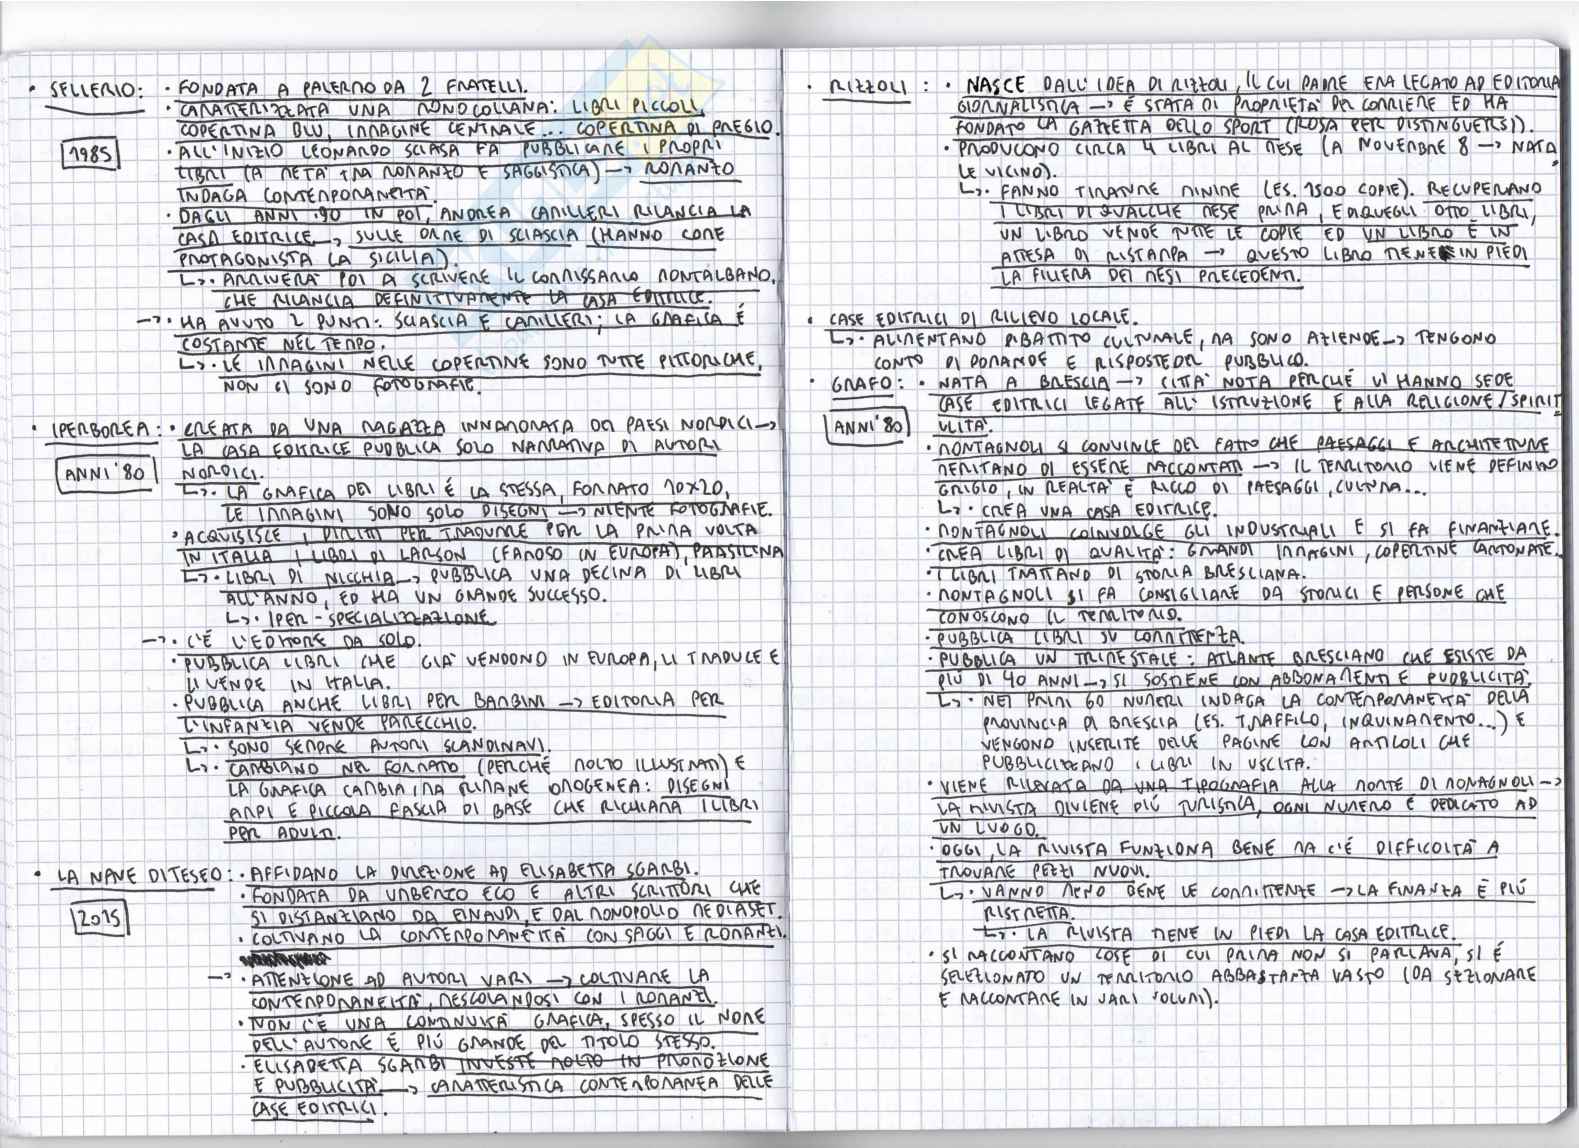 • SELLERIO: • FONDATA A PALERMO DA 2 FRATELLI.
• CARATTERIZZATA UNA MONOCOLLANA: LIBRI PICCOLI,
COPERTINA BLU, IMMAGINE CENTRALE... COPERTINA DI PREGIO.
1985
• ALL'INIZIO LEONARDO SCIASA FA PUBBLICARE I PROPRI
LIBRI (A METÀ TRA ROMANZO E SAGGISTICA) → ROMANZO
INDAGA CONTEMPORANEITÀ.
• DAGLI ANNI '90 IN POI, ANDREA CAMILLERI RILANCIA LA
CASA EDITRICE → SULLE ORME DI SCIASCIA (HANNO COME
PROTAGONISTA LA SICILIA).
↳• ARRIVERÀ POI A SCRIVERE IL COMMISSARIO MONTALBANO,
CHE RILANCIA DEFINITIVAMENTE LA CASA EDITRICE.
→• HA AVUTO 2 PUNTI: SCIASCIA E CAMILLERI; LA GRAFICA È
COSTANTE NEL TEMPO.
↳• LE IMMAGINI NELLE COPERTINE SONO TUTTE PITTORICHE,
NON CI SONO FOTOGRAFIE.
• IPERBOREA: • CREATA DA UNA RAGAZZA INNAMORATA DEI PAESI NORDICI →
LA CASA EDITRICE PUBBLICA SOLO NARRATIVA DI AUTORI
ANNI '80
NORDICI.
↳• LA GRAFICA DEI LIBRI É LA STESSA, FORMATO 10x20,
LE IMMAGINI SONO SOLO DISEGNI → NIENTE FOTOGRAFIE.
• ACQUISISCE I DIRITTI PER TRADURRE PER LA PRIMA VOLTA
IN ITALIA I LIBRI DI LARSON (FAMOSO IN EUROPA), PAASILINA
↳• LIBRI DI NICCHIA → PUBBLICA UNA DECINA DI LIBRI
ALL'ANNO, ED HA UN GRANDE SUCCESSO.
↳• IPER-SPECIALIZZAZIONE
→• C'È L'EDITORE DA SOLO.
• PUBBLICA LIBRI CHE GIÀ VENDONO IN EUROPA, LI TRADUCE E
LI VENDE IN ITALIA.
• PUBBLICA ANCHE LIBRI PER BAMBINI → EDITORIA PER
L'INFANZIA VENDE PARECCHIO.
↳• SONO SEMPRE AUTORI SCANDINAVI.
↳• CAMBIANO NEL FORMATO (PERCHÉ MOLTO ILLUSTRATI) E
LA GRAFICA CAMBIA, MA RIMANE OMOGENEA: DISEGNI
AMPI E PICCOLA FASCIA DI BASE CHE RICHIAMA I LIBRI
PER ADULTI.
• LA NAVE DI TESEO: • AFFIDANO LA DIREZIONE AD ELISABETTA SGARBI.
• FONDATA DA UMBERTO ECO E ALTRI SCRITTORI CHE
2015
SI DISTANZIANO DA EINAUDI, E DAL MONOPOLIO MEDIASET.
• COLTIVANO LA CONTEMPORANEITÀ CON SAGGI E ROMANZI.
→• ATTENZIONE AD AUTORI VARI → COLTIVARE LA
CONTEMPORANEITÀ, MESCOLANDOSI CON I ROMANZI.
• NON C'È UNA CONTINUITÀ GRAFICA, SPESSO IL NOME
DELL'AUTORE È PIÚ GRANDE DEL TITOLO STESSO.
• ELISABETTA SGARBI INVESTE MOLTO IN PROMOZIONE
E PUBBLICITÀ → CARATTERISTICA CONTEMPORANEA DELLE
CASE EDITRICI.
• RIZZOLI: • NASCE DALL'IDEA DI RIZZOLI, IL CUI PADRE ERA LEGATO AD EDITORIA
GIORNALISTICA → È STATA DI PROPRIETÀ DEL CORRIERE ED HA
FONDATO LA GAZZETTA DELLO SPORT (ROSA PER DISTINGUERSI).
• PRODUCONO CIRCA 4 LIBRI AL MESE (A NOVEMBRE 8 → NATA
LE VICINO).
↳• FANNO TIRATURE MINIME (ES. 1500 COPIE). RECUPERANO
I LIBRI DI QUALCHE MESE PRIMA, E DI QUEGLI OTTO LIBRI,
UN LIBRO VENDE TUTTE LE COPIE ED UN LIBRO È IN
ATTESA DI RISTAMPA → QUESTO LIBRO TIENE IN PIEDI
LA FILIERA DEI MESI PRECEDENTI.
• CASE EDITRICI DI RILIEVO LOCALE.
↳• ALIMENTANO DIBATTITO CULTURALE, MA SONO AZIENDE → TENGONO
CONTO DI DOMANDE E RISPOSTE DEL PUBBLICO.
• GRAFO: • NATA A BRESCIA → CITTÀ NOTA PERCHÉ VI HANNO SEDE
CASE EDITRICI LEGATE ALL'ISTRUZIONE E ALLA RELIGIONE/SPIRIT
ANNI '80
UALITÀ.
• MONTAGNOLI SI CONVINCE DEL FATTO CHE PAESAGGI E ARCHITETTURE
MERITANO DI ESSERE RACCONTATI → IL TERRITORIO VIENE DEFINITO
GRIGIO, IN REALTÀ È RICCO DI PAESAGGI, CULTURA...
↳• CREA UNA CASA EDITRICE.
• MONTAGNOLI COINVOLGE GLI INDUSTRIALI E SI FA FINANZIARE.
• CREA LIBRI DI QUALITÀ: GRANDI IMMAGINI, COPERTINE CARTONATE.
• I LIBRI TRATTANO DI STORIA BRESCIANA.
• MONTAGNOLI SI FA CONSIGLIARE DA STORICI E PERSONE CHE
CONOSCONO IL TERRITORIO.
• PUBBLICA LIBRI SU COMMITTENZA.
• PUBBLICA UN TRIMESTALE: ATLANTE BRESCIANO CHE ESISTE DA
PIÙ DI 40 ANNI → SI SOSTIENE CON ABBONAMENTI E PUBBLICITÀ.
↳• NEI PRIMI 60 NUMERI INDAGA LA CONTEMPORANEITÀ DELLA
PROVINCIA DI BRESCIA (ES. TRAFFICO, INQUINAMENTO...) E
VENGONO INSERITE DELLE PAGINE CON ARTICOLI CHE
PUBBLICIZZANO I LIBRI IN USCITA.
• VIENE RILEVATA DA UNA TIPOGRAFIA ALLA MORTE DI MONAGNOLI →
LA RIVISTA DIVIENE PIÚ TURISTICA, OGNI NUMERO È DEDICATO AD
UN LUOGO.
• OGGI, LA RIVISTA FUNZIONA BENE MA C'É DIFFICOLTÀ A
TROVARE PEZZI NUOVI.
↳• VANNO MENO BENE LE COMMITTENZE → LA FINANZA È PIÙ
RISTRETTA.
↳• LA RIVISTA TIENE IN PIEDI LA CASA EDITRICE.
• SI RACCONTANO COSE DI CUI PRIMA NON SI PARLAVA, SI È
SELEZIONATO UN TERRITORIO ABBASTANZA VASTO (DA SEZIONARE
E RACCONTARE IN VARI VOLUMI).